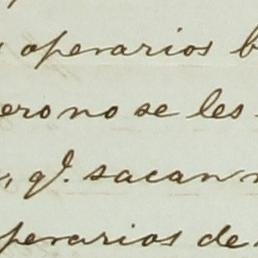 operarios b
ero no se les
, q.e sacan
perarios de